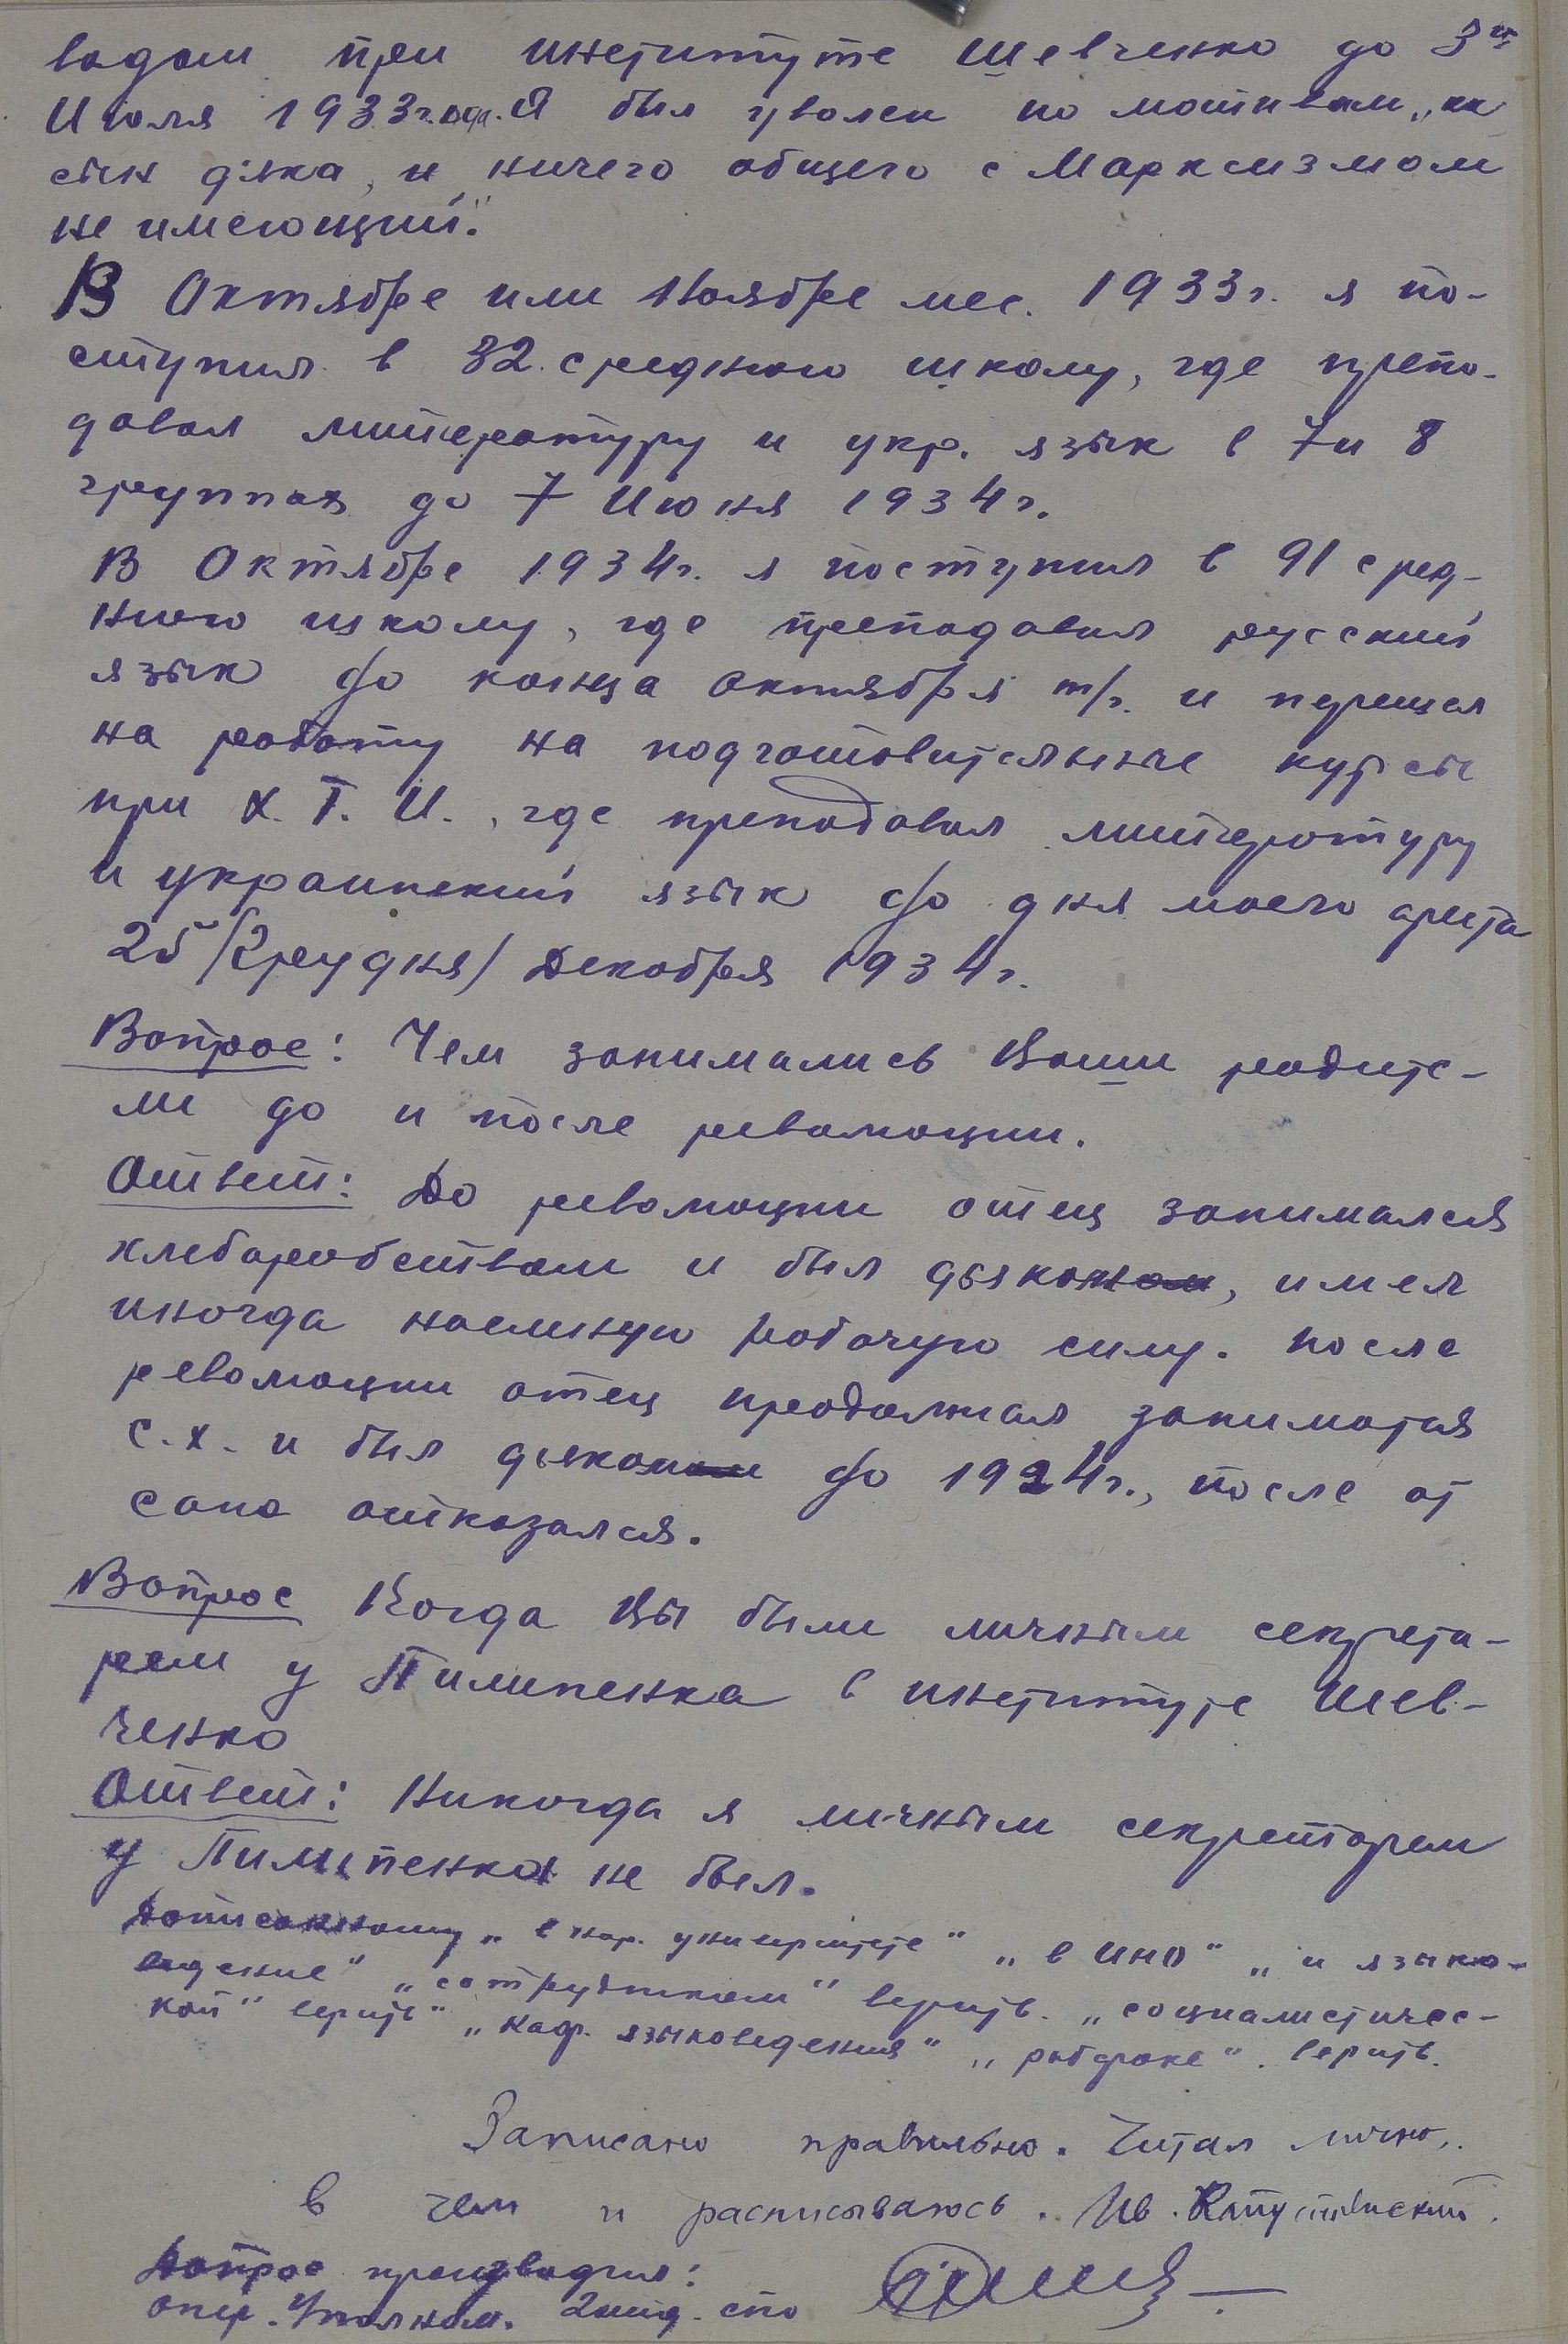 водом при институте Шевченко до 3го
Июля 1933 года. Я был уволен по мотивам „как
сын дяка, и ничего общего с Марксизмом
не имеющий".
В Октябре или Ноябре мес. 1933 г. я по-
ступил в 32 среднюю школу, где препо-
давал литературу и укр. язык в 7 и 8
группах до 7 Июня 1934 г.
В Октябре 1934 г. я поступил в 91 сред-
нюю школу, где преподавал русский
язык до конца октября т/г. и перешел
на работу на подготовительные курсы
при Х. Т. И., где преподавал литературу
и украинский язык до дня моего ареста
25 /Грудня/ Декабря 1934 г.
Вопрос: Чем занимались Ваши родите-
ли до и после революции.
Ответ: До революции отец занимался
хлеборобством и был дьяком, имел
иногда наемную рабочую силу. После
революции отец продолжал заниматся
с.х. и был дьяком до 1924 г., после от
сана отказался.
Вопрос Когда Вы были личным секрета-
рем у Пилипенка в институте Шев-
ченко
Ответ: Никогда я личным секретарем
у Пилипенка не был.
Дописанному „в хар. университете" „в ИНО" „и языко-
ведение" „сотрудником" верить. „социалистичес-
кой" верить „каф. языковедения" „рабфаке". верить.
Записано правильно. Читал лично,
в чем и расписываюсь. Ив. Капустянский.
Допрос производил:
Опер. Уполном. 2 отд. СПО